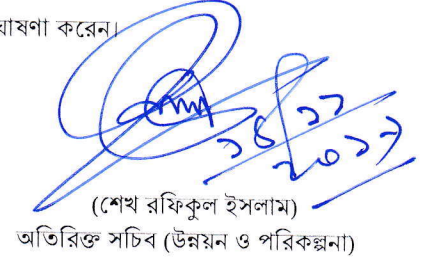 ঘাষণা করেন।
(শেখ রফিকুল ইসলাম)
অতিরিক্ত সচিব (উন্নয়ন ও পরিকল্পনা)